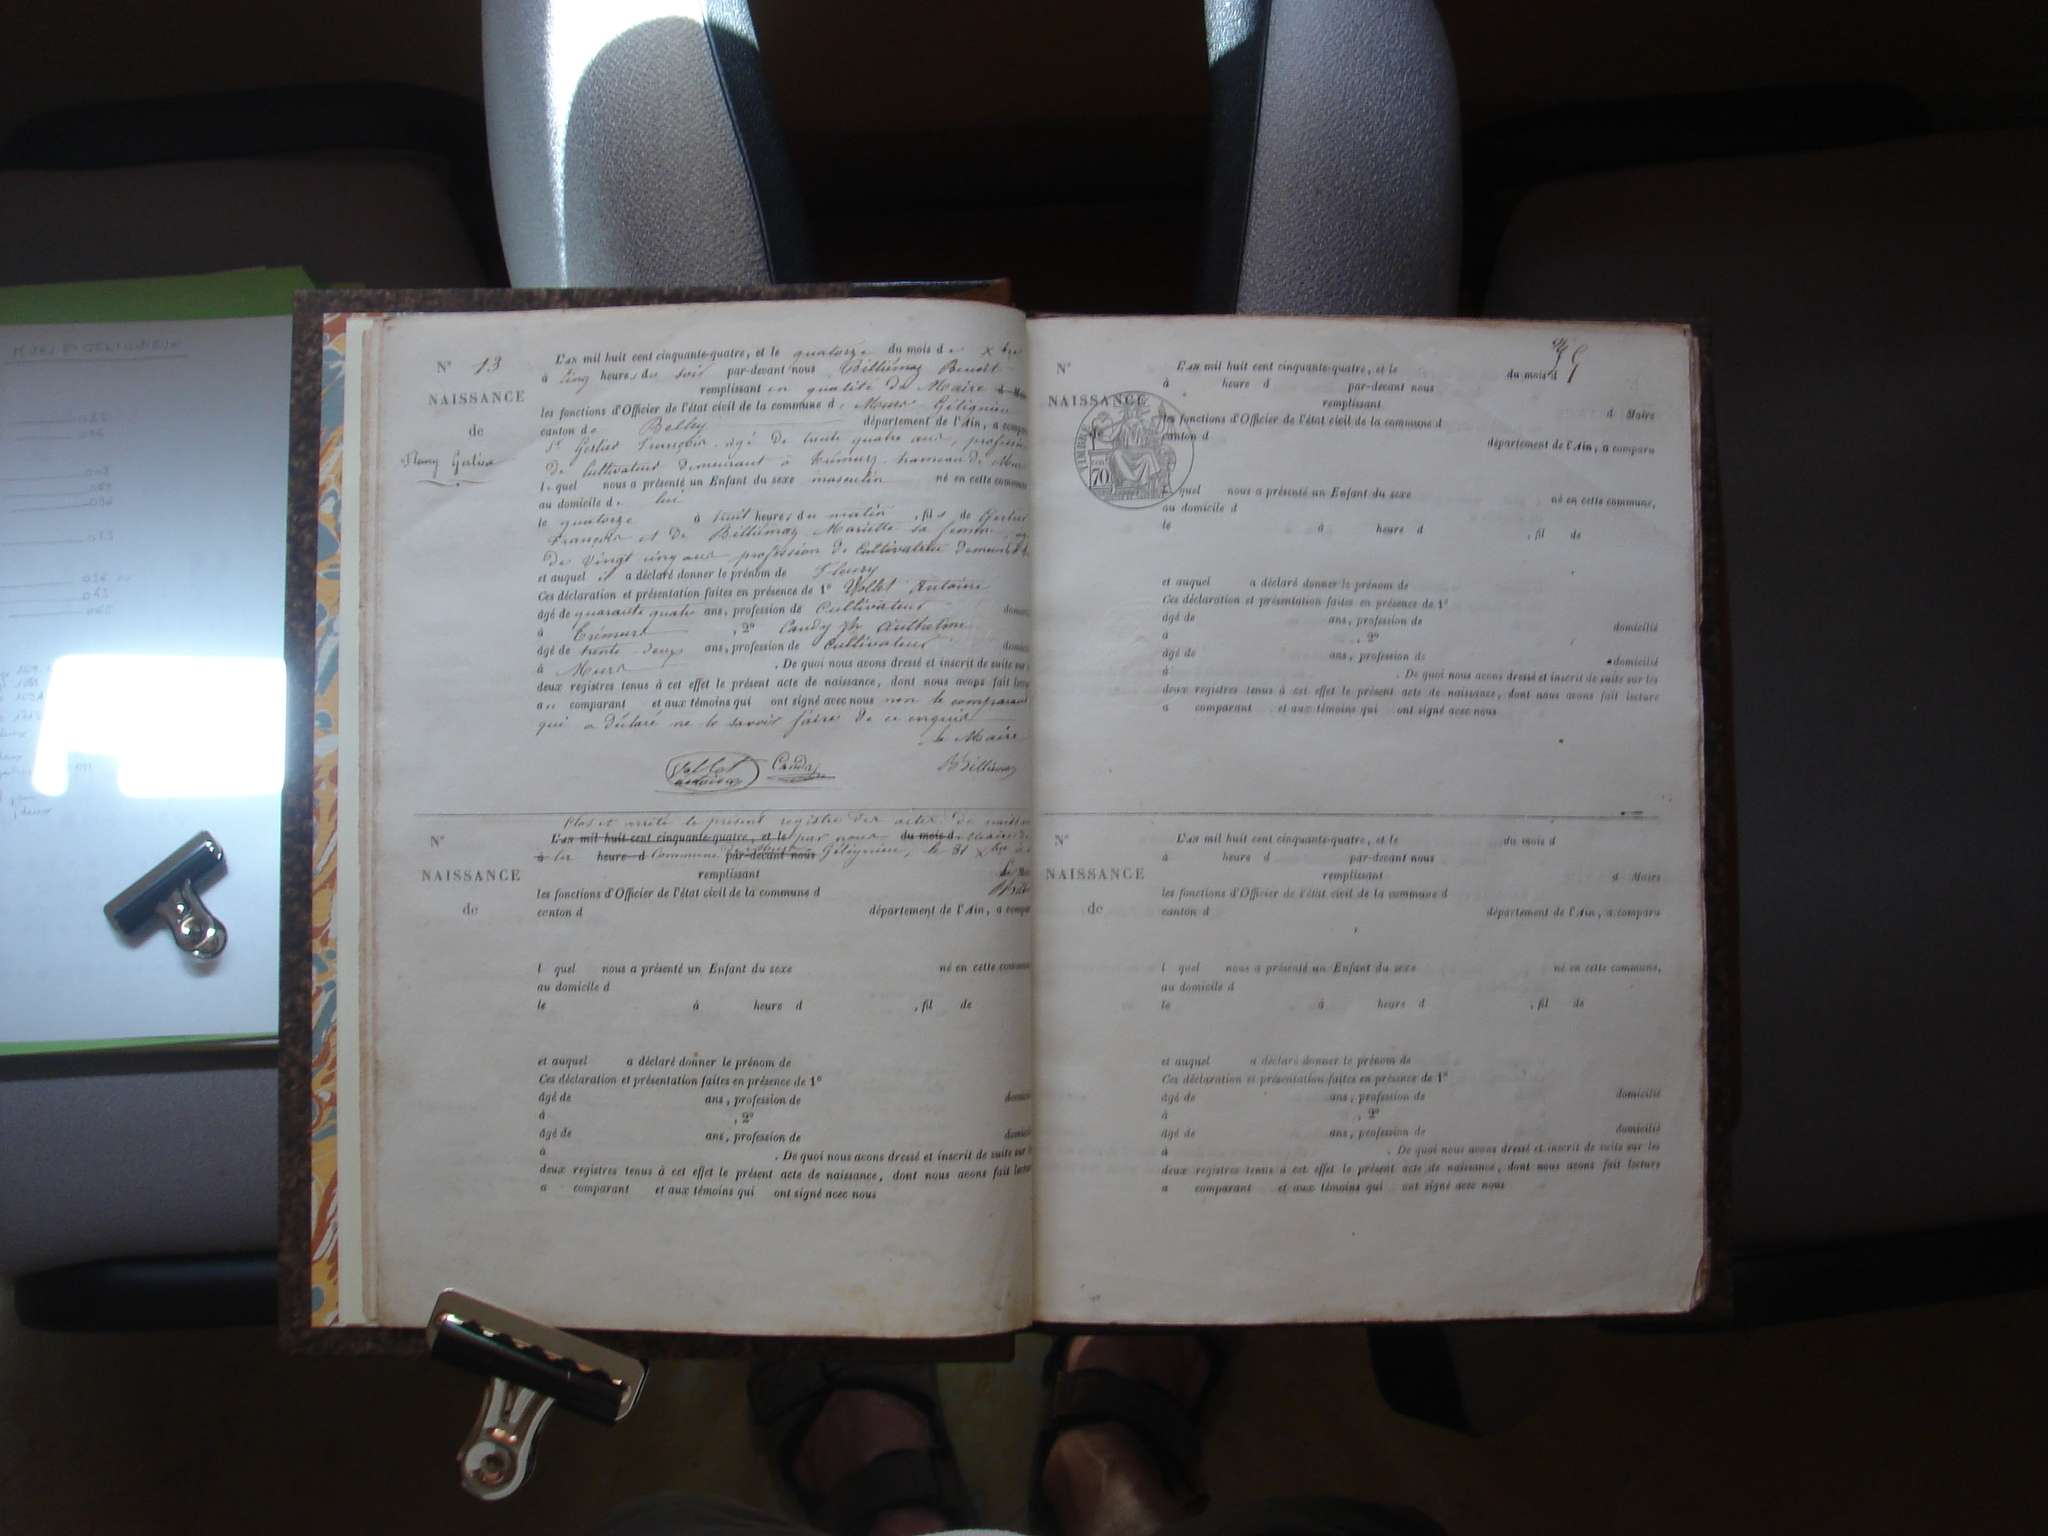 N° 13
NAISSANCE
de
Fleury Gerlier
L'AN mil huit cent cinquante-quatre, et le quatorze du mois de Xbre
à cinq heures du soir par-devant nous Billiémaz Benoît
remplissant en qualité de Maire
les fonctions d'Officier de l'état civil de la commune d
canton de Belley département de l'Ain, a compa
François, âgé de trente quatre ans, profession
de Cultivateur demeurant à hameau de
lequel nous a présenté un Enfant du sexe masculin né en cette commune
au domicile de lui
le quatorze à huit heures du matin, fils de Gerlier
François et de Billiémaz Mariette sa femme
de vingt cinq ans profession de Cultivateur
et auquel il a déclaré donner le prénom de Fleury
Ces déclaration et présentation faites en présence de 1° Vollet Antoine
âgé de quarante quatre ans, profession de Cultivateur
à , 2° Canday
âgé de trente-deux ans, profession de Cultivateur
à . De quoi nous avons dressé et inscrit de suite sur
deux registres tenus à cet effet le présent acte de naissance, dont nous avons fait lectu
au comparant et aux témoins qui ont signé avec nous non le comparant
qui a déclaré ne le savoir faire de ce enquis
Le Maire
Vollet
Canday
Billiémaz
Clos et arrêté le présent registre des actes de naissan
N°
L'AN mil huit cent cinquante-quatre, et le par nous du mois d
à heure d Commune par-devant nous le 31 Xbre
NAISSANCE
remplissant
de
les fonctions d'Officier de l'état civil de la commune d
canton d département de l'Ain, a compa
l quel nous a présenté un Enfant du sexe né en cette commun
au domicile d
le à heure d , fil de
et auquel a déclaré donner le prénom de
Ces déclaration et présentation faites en présence de 1°
âgé de ans, profession de
à , 2°
âgé de ans, profession de
à . De quoi nous avons dressé et inscrit de suite sur
deux registres tenus à cet effet le présent acte de naissance, dont nous avons fait lectu
a comparant et aux témoins qui ont signé avec nous
N°
NAISSANCE
TIMBRE
70
L'AN mil huit cent cinquante-quatre, et le du mois d
à heure d par-devant nous
remplissant
d Maire
les fonctions d'Officier de l'état civil de la commune d
canton d
département de l'Ain, a comparu
quel nous a présenté un Enfant du sexe né en cette commune,
au domicile d
le à heure d , fil de
et auquel a déclaré donner le prénom de
Ces déclaration et présentation faites en présence de 1°
âgé de ans, profession de domicilié
à , 2°
âgé de ans, profession de domicilié
à . De quoi nous avons dressé et inscrit de suite sur les
deux registres tenus à cet effet le présent acte de naissance, dont nous avons fait lecture
a comparant et aux témoins qui ont signé avec nous
N°
NAISSANCE
de
L'AN mil huit cent cinquante-quatre, et le du mois d
à heure d par-devant nous
remplissant d Maire
les fonctions d'Officier de l'état civil de la commune d
canton d département de l'Ain, a comparu
l quel nous a présenté un Enfant du sexe né en cette commune,
au domicile d
le à heure d , fil de
et auquel a déclaré donner le prénom de
Ces déclaration et présentation faites en présence de 1°
âgé de ans, profession de domicilié
à , 2°
âgé de ans, profession de domicilié
à . De quoi nous avons dressé et inscrit de suite sur les
deux registres tenus à cet effet le présent acte de naissance, dont nous avons fait lecture
a comparant et aux témoins qui ont signé avec nous